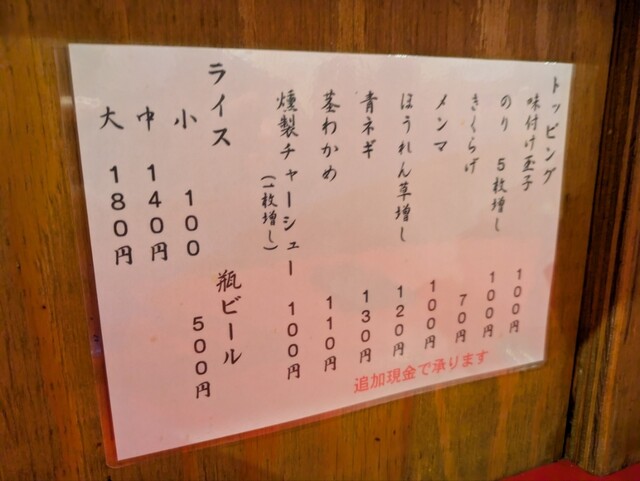 トッピング
味付け玉子 100円
のり 5枚増し 100円
きくらげ 70円
メンマ 100円
ほうれん草増し 120円
青ネギ 130円
茎わかめ 110円
燻製チャーシュー 100円
(1枚増し)
ライス
小 100
中 140円
大 180円
瓶ビール
500円
追加現金で承ります